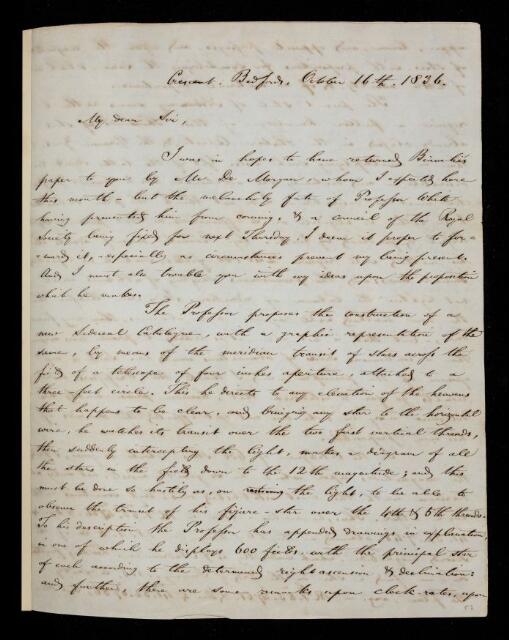 Crescent, Bedford, October 16th. 1836.
My dear Sir,
I was in hopes to have returned Bianchi's
paper to you by Mr. De Morgan, whom I expected here
this month – but the melancholy fate of Professor White
having prevented him from coming, & a council of the Royal
Society being fixed for next Thursday, I deem it proper to for-
-ward it, especially as circumstances prevent my being present.
And I must also trouble you with my ideas upon the proposition
which he makes.
The Professor proposes the construction of a
new Sidereal Catalogue with a graphic representation of the
same, by means of the meridian transit of stars across the
field of a telescope of four inches aperture, attached to a
three-foot circle. This he directs to any elevation of the heavens
that happens to be clear, and bringing any star to the horizontal
wire, he watches its transit over the two first vertical threads,
then suddenly intercepting the light, makes a diagram of all
the stars in the field down to the 12th magnitude; and this
must be done so hastily as, on restoring the light, to be able to
observe the transit of his figure-star over the 4th & 5th threads.
To his description the Professor has appended drawings in explanation,
in one of which he displays 600 fields, with the principal star
of each according to the determined right ascension & declination:
and further, there are some remarks upon clock-rates, upon